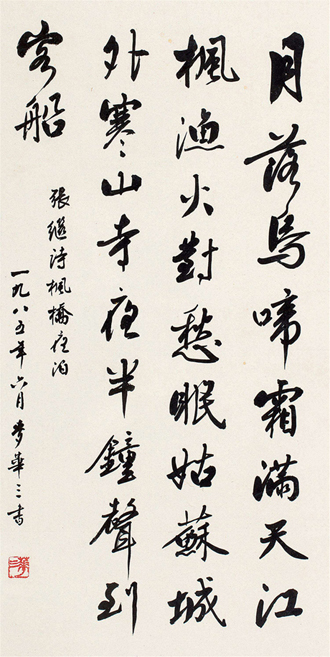 月落烏啼霜滿天江
楓漁火對愁眠姑蘇城
外寒山寺夜半鐘聲到
客船
張繼詩楓橋夜泊
一九八五年六月麥華三書